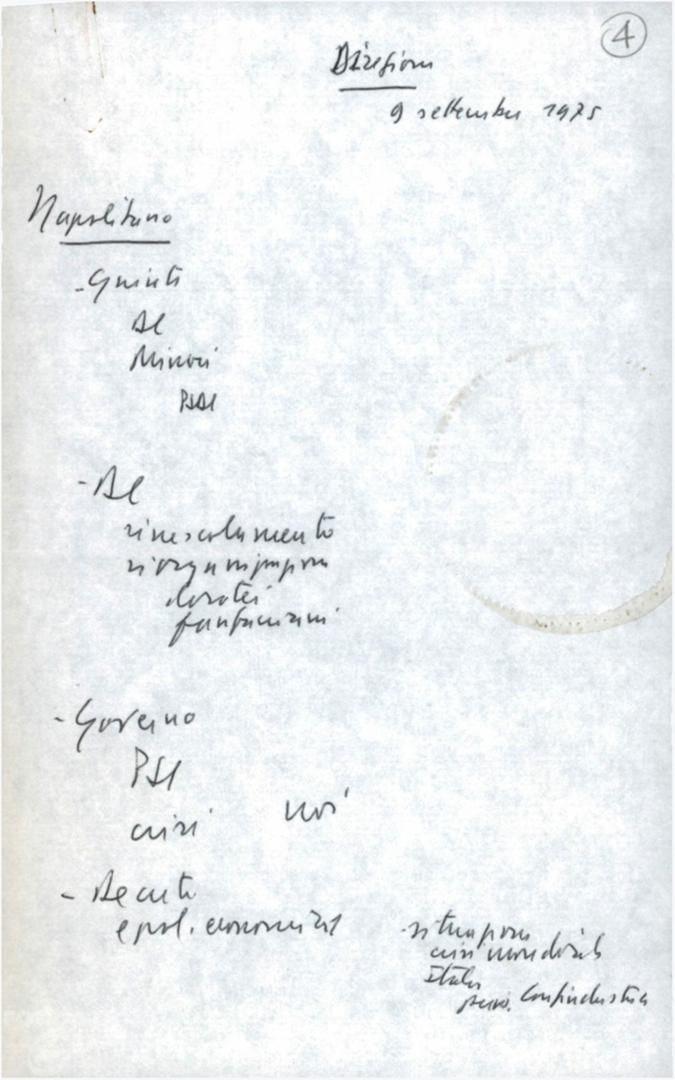 4
Direzione
9 settembre 1975
Napolitano
- Giunte
DC
Minori
PSDI
- DC
rimescolamento
riorganizzazione
dorotei
fanfaniani
- Governo
PSI
crisi noi
- Decreto
e pol. economica
- situazione
crisi mondiale
Italia
Confindustria